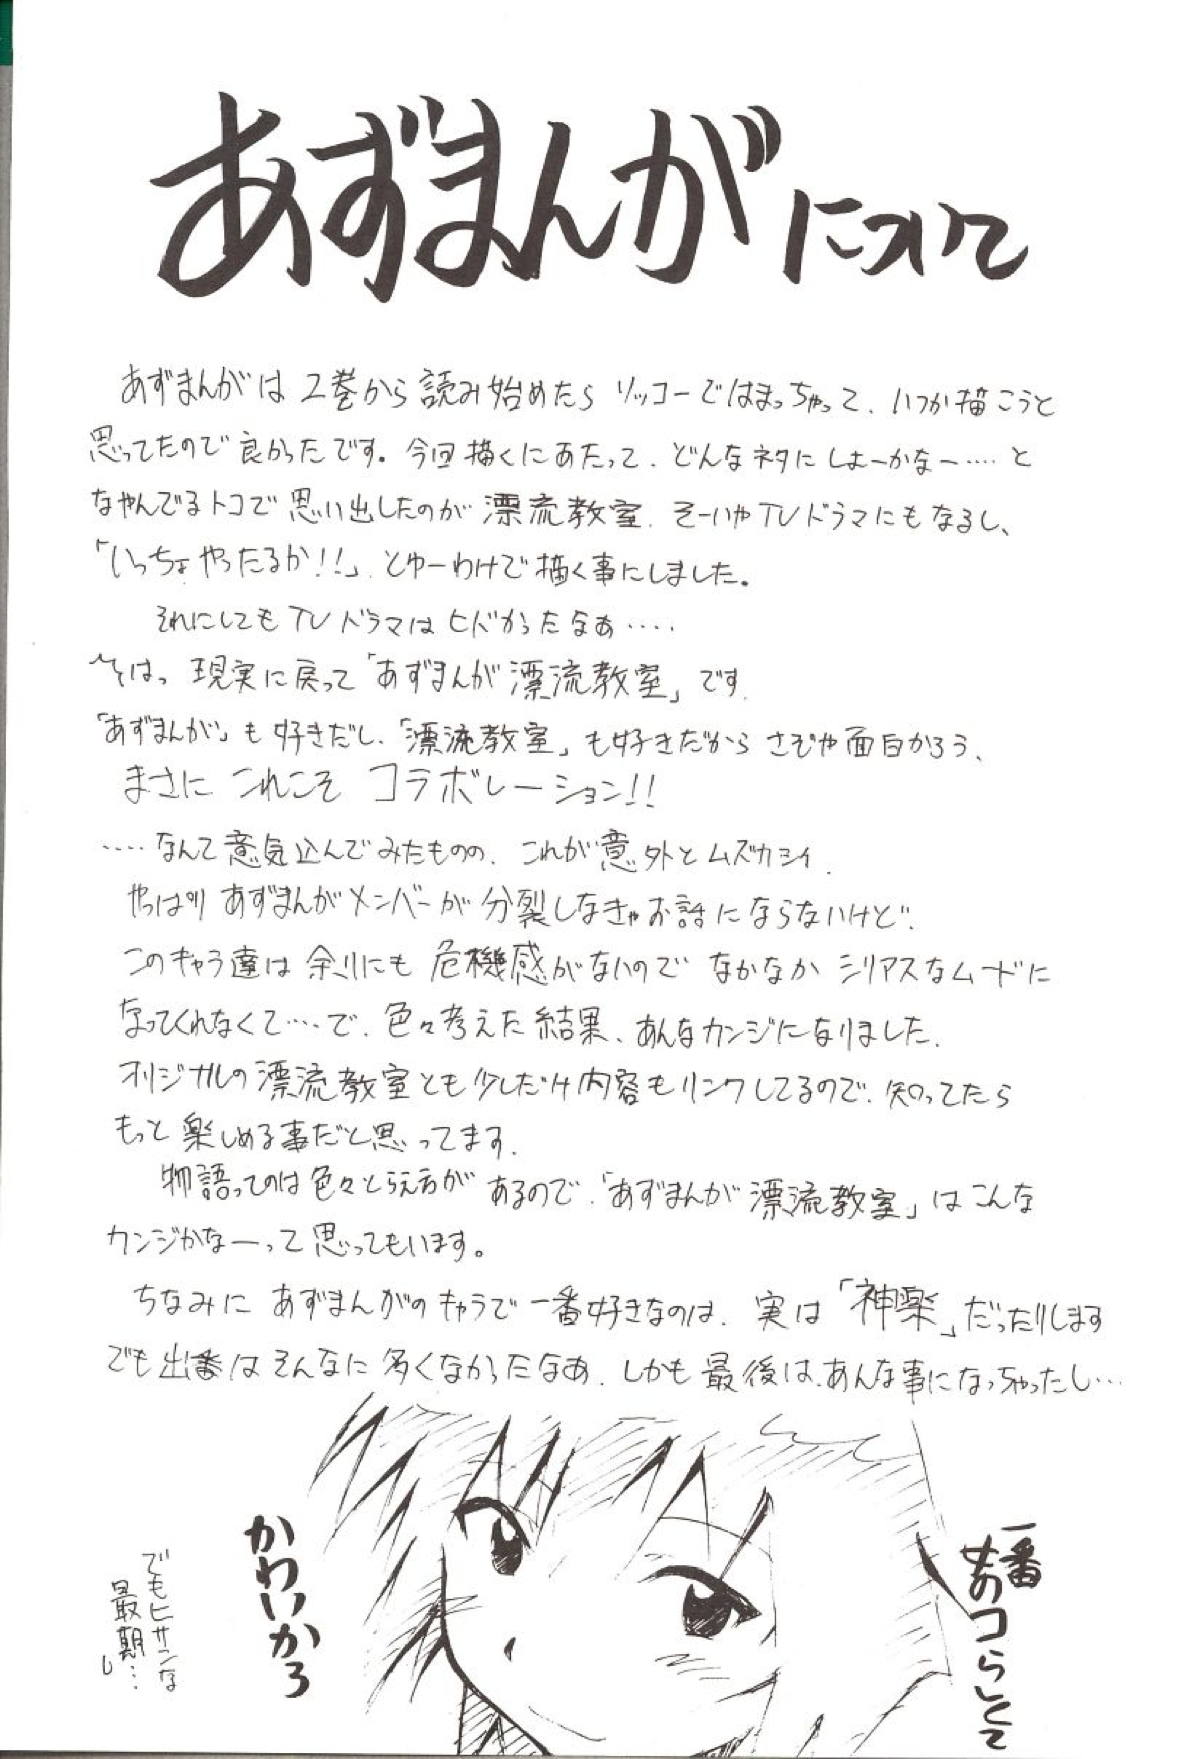 あずまんがについて
あずまんがは2巻から読み始めたらソッコーではまっちゃって、いつか描こうと
思ってたので良かったです。今回描くにあたって、どんなネタにしよーかなー‥‥と
なやんでるトコで思い出したのが漂流教室、そーいやTVドラマにもなるし、
「いっちょやったるか!!」とゆーわけで描く事にしました。
それにしてもTVドラマはヒドかったなぁ‥‥
現実に戻って「あずまんが漂流教室」です。
「あずまんが」も好きだし、「漂流教室」も好きだからさぞや面白かろう、
まさに これこそ コラボレーション!!
‥‥なんて意気込んでみたものの、これが意外とムズカシイ、
やっぱりあずまんがメンバーが分裂しなきゃお話にならないけど、
このキャラ達は余りにも危機感がないので なかなか シリアスなムードに
なってくれなくて‥‥で、色々考えた結果、あんなカンジになりました。
オリジナルの漂流教室とも少しだけ内容もリンクしてるので、知ってたら
もっと楽しめる事だと思ってます。
物語ってのは色々とらえ方があるので、「あずまんが漂流教室」はこんな
カンジかなーって思ってもいます。
ちなみに あずまんがのキャラで一番好きなのは、実は「神楽」だったりします
でも出番はそんなに多くなかったなあ、しかも最後は、あんな事になっちゃったし‥
一番
オコらしくて
かわいかろ
でもヒサンな
最期‥